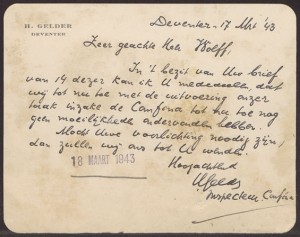 H. GELDER
DEVENTER
Deventer. 17 Mrt '43
Zeer geachte Heer Wolff,
In 't bezit van Uw brief
van 14 dezer kan ik U mededeelen dat
wij tot nu toe met de uitvoering onzer
taak inzake de Canfina tot nu toe nog
geen moeilijkheden ondervonden hebben.
Mocht Uwe voorlichting noodig zijn,
dan zullen wij ons tot U wenden.
Hoogachtend
18 MAART 1943
Gelder
Inspecteur Canfina